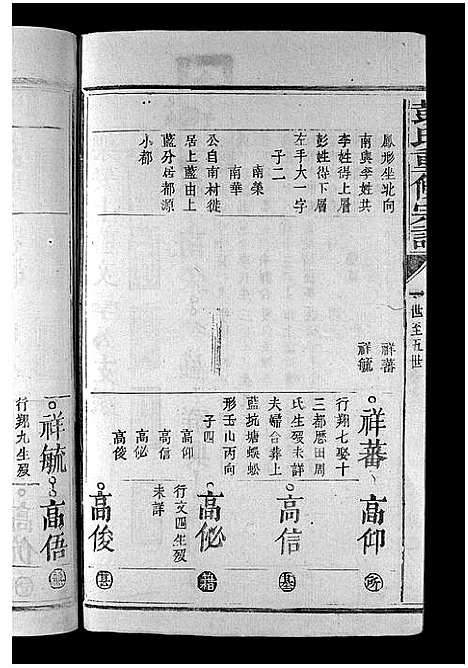 彭氏重修宗譜
一世至五世
鳳形坐北向
南與李姓共
李姓得上層
彭姓得下層
左手大一字
子二
南榮
南華
公自南村徙
居上藍由上
藍分居都源
小都
祥蕃
祥毓
祥蕃
高仰
所
行翔七娶十
三都曆田周
氏生歿未詳
夫婦合葬上
藍坑塘蜈蚣
形壬山丙向
子四
高仰
高信
高俊
高信
基
行文四生歿
未詳
籍
高俊
甚
祥毓
高俉
行翔九生歿